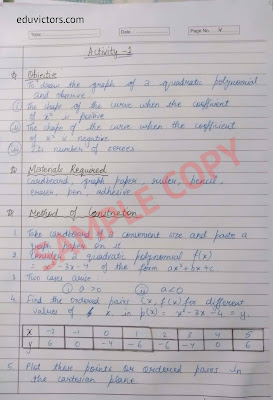 eduvictors.com
Topic
Date
Page No. 4
Activity -2
Objective
To draw the graph of a quadratic polynomial
and observe:
(i) The shape of the curve when the coefficient
of x² is positive
(ii) The shape of the curve when the coefficient
of x² is negative
(iii) Its number of zeroes
Materials Required
Cardboard, graph paper, ruler, pencil,
eraser, pen, adhesive
Method of Construction
1. Take cardboard of a convenient size and paste a
graph paper on it
2. Consider a quadratic polynomial f(x)
= x² - 3x - 4 of the form ax² + bx + c
3. Two cases arise
(i) a > 0 (ii) a < 0
4. Find the ordered pairs (x, f(x)) for different
values of x in p(x) = x² - 3x - 4 = y.
X -2 -1 0 1 2 3 4 5
Y 6 0 -4 -6 -6 -4 0 6
5. Plot these points or ordered pairs in
the cartesian plane.
SAMPLE COPY